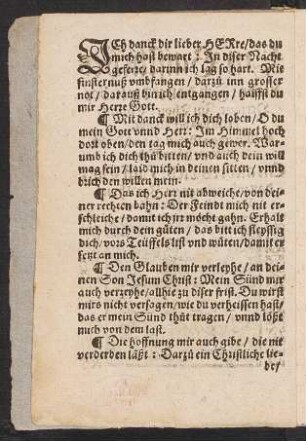 ICh danck dir lieber HERre/das du
mich hast bewart : In diser Nacht
geferre/ darinn ich lag so hart. Mit
finsternuß vmbfangen / darzů inn grosser
not / darauß bin ich entgangen / halffst du
mir Herre Gott.
¶ Mit danck will ich dich loben / O du
mein Gott vnnd Herr: Im Himmel hoch
dort oben/den tag mich auch gewer. War-
umb ich dich thů bitten / vnd auch dein will
mag sein / laid mich in deinen sitten / vnnd
brich den willen mein.
¶ Das ich Herr nit abweiche/von dei-
ner rechten bahn : Der Feindt mich nit er-
schleiche / damit ich irr möcht gahn. Erhalt
mich durch dein güten / das bitt ich fleyssig
dich/ vors Teüffels list vnd wüten/damit er
setzt an mich.
¶ Den Glauben mir verleyhe / an dei-
nen Son Jesum Christ : Mein Sünd mir
auch verzeyhe/allhie zů diser frist. Du wirst
mirs nicht versagen/wie du verheissen hast/
das er mein Sünd thůt tragen / vnnd lößt
mich von dem last.
¶ Die hoffnung mir auch gibe / die nit
verderben läßt : Darzů ein Christliche lie-
be/